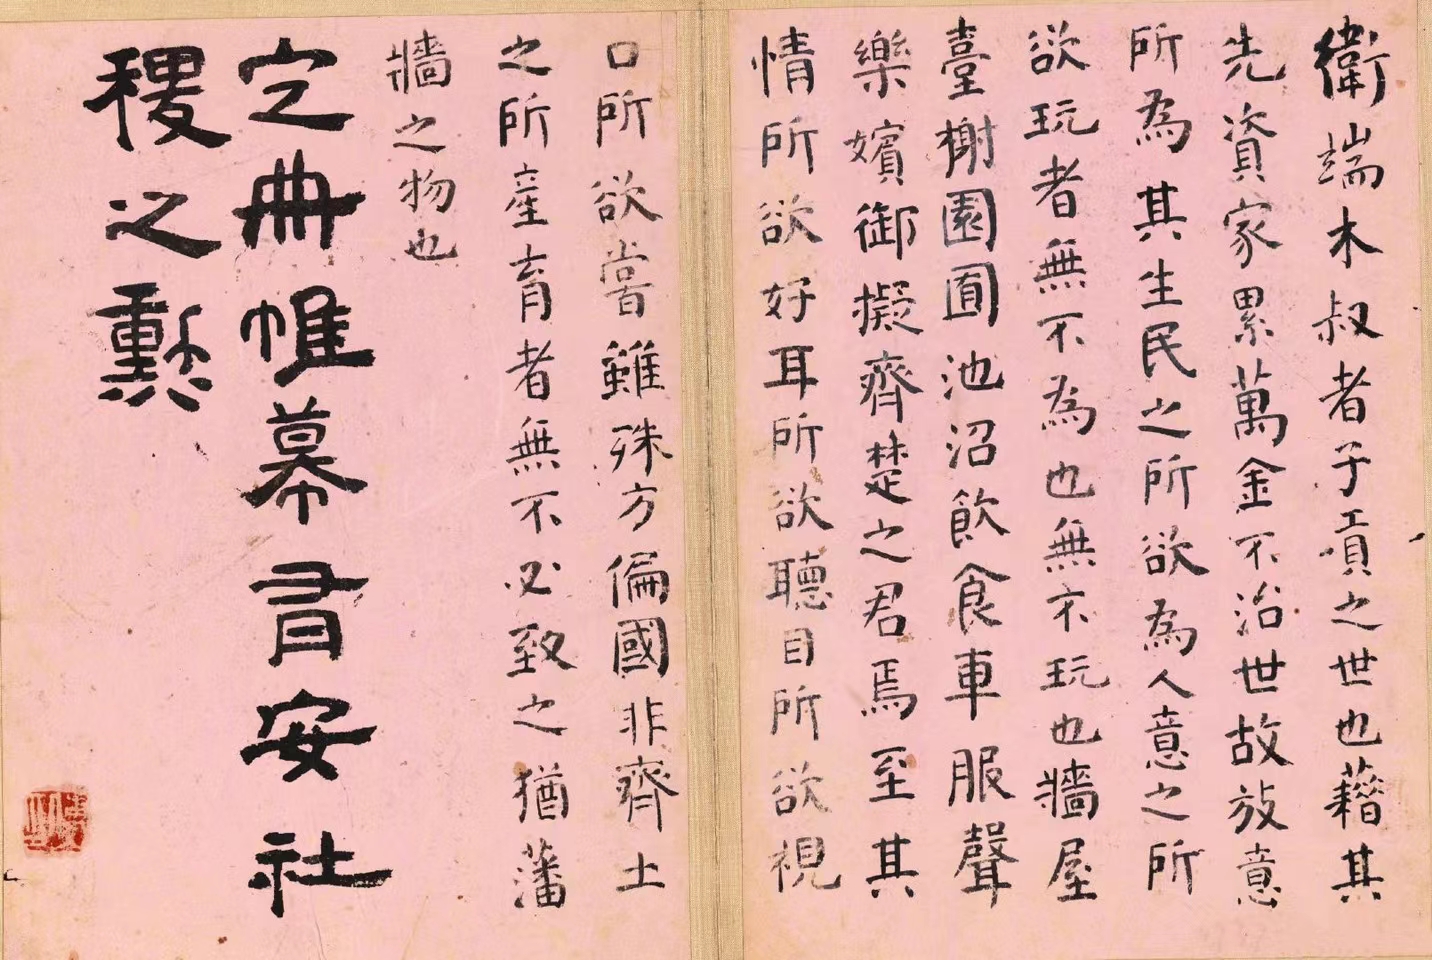 衛端木叔者子項之世也藉其
先資家累萬金不治世故放意
所為其生民之所欲為人意之所
欲玩者無不為也無不玩也牆屋
臺榭園囿池沼飲食車服聲
樂嬪御擬齊楚之君焉至其
情所欲好耳所欲聽目所欲視
口所欲嘗雖殊方偏國非齊土
之所產育者無不必致之猶藩
牆之物也
定冊帷幕有安社
稷之勲